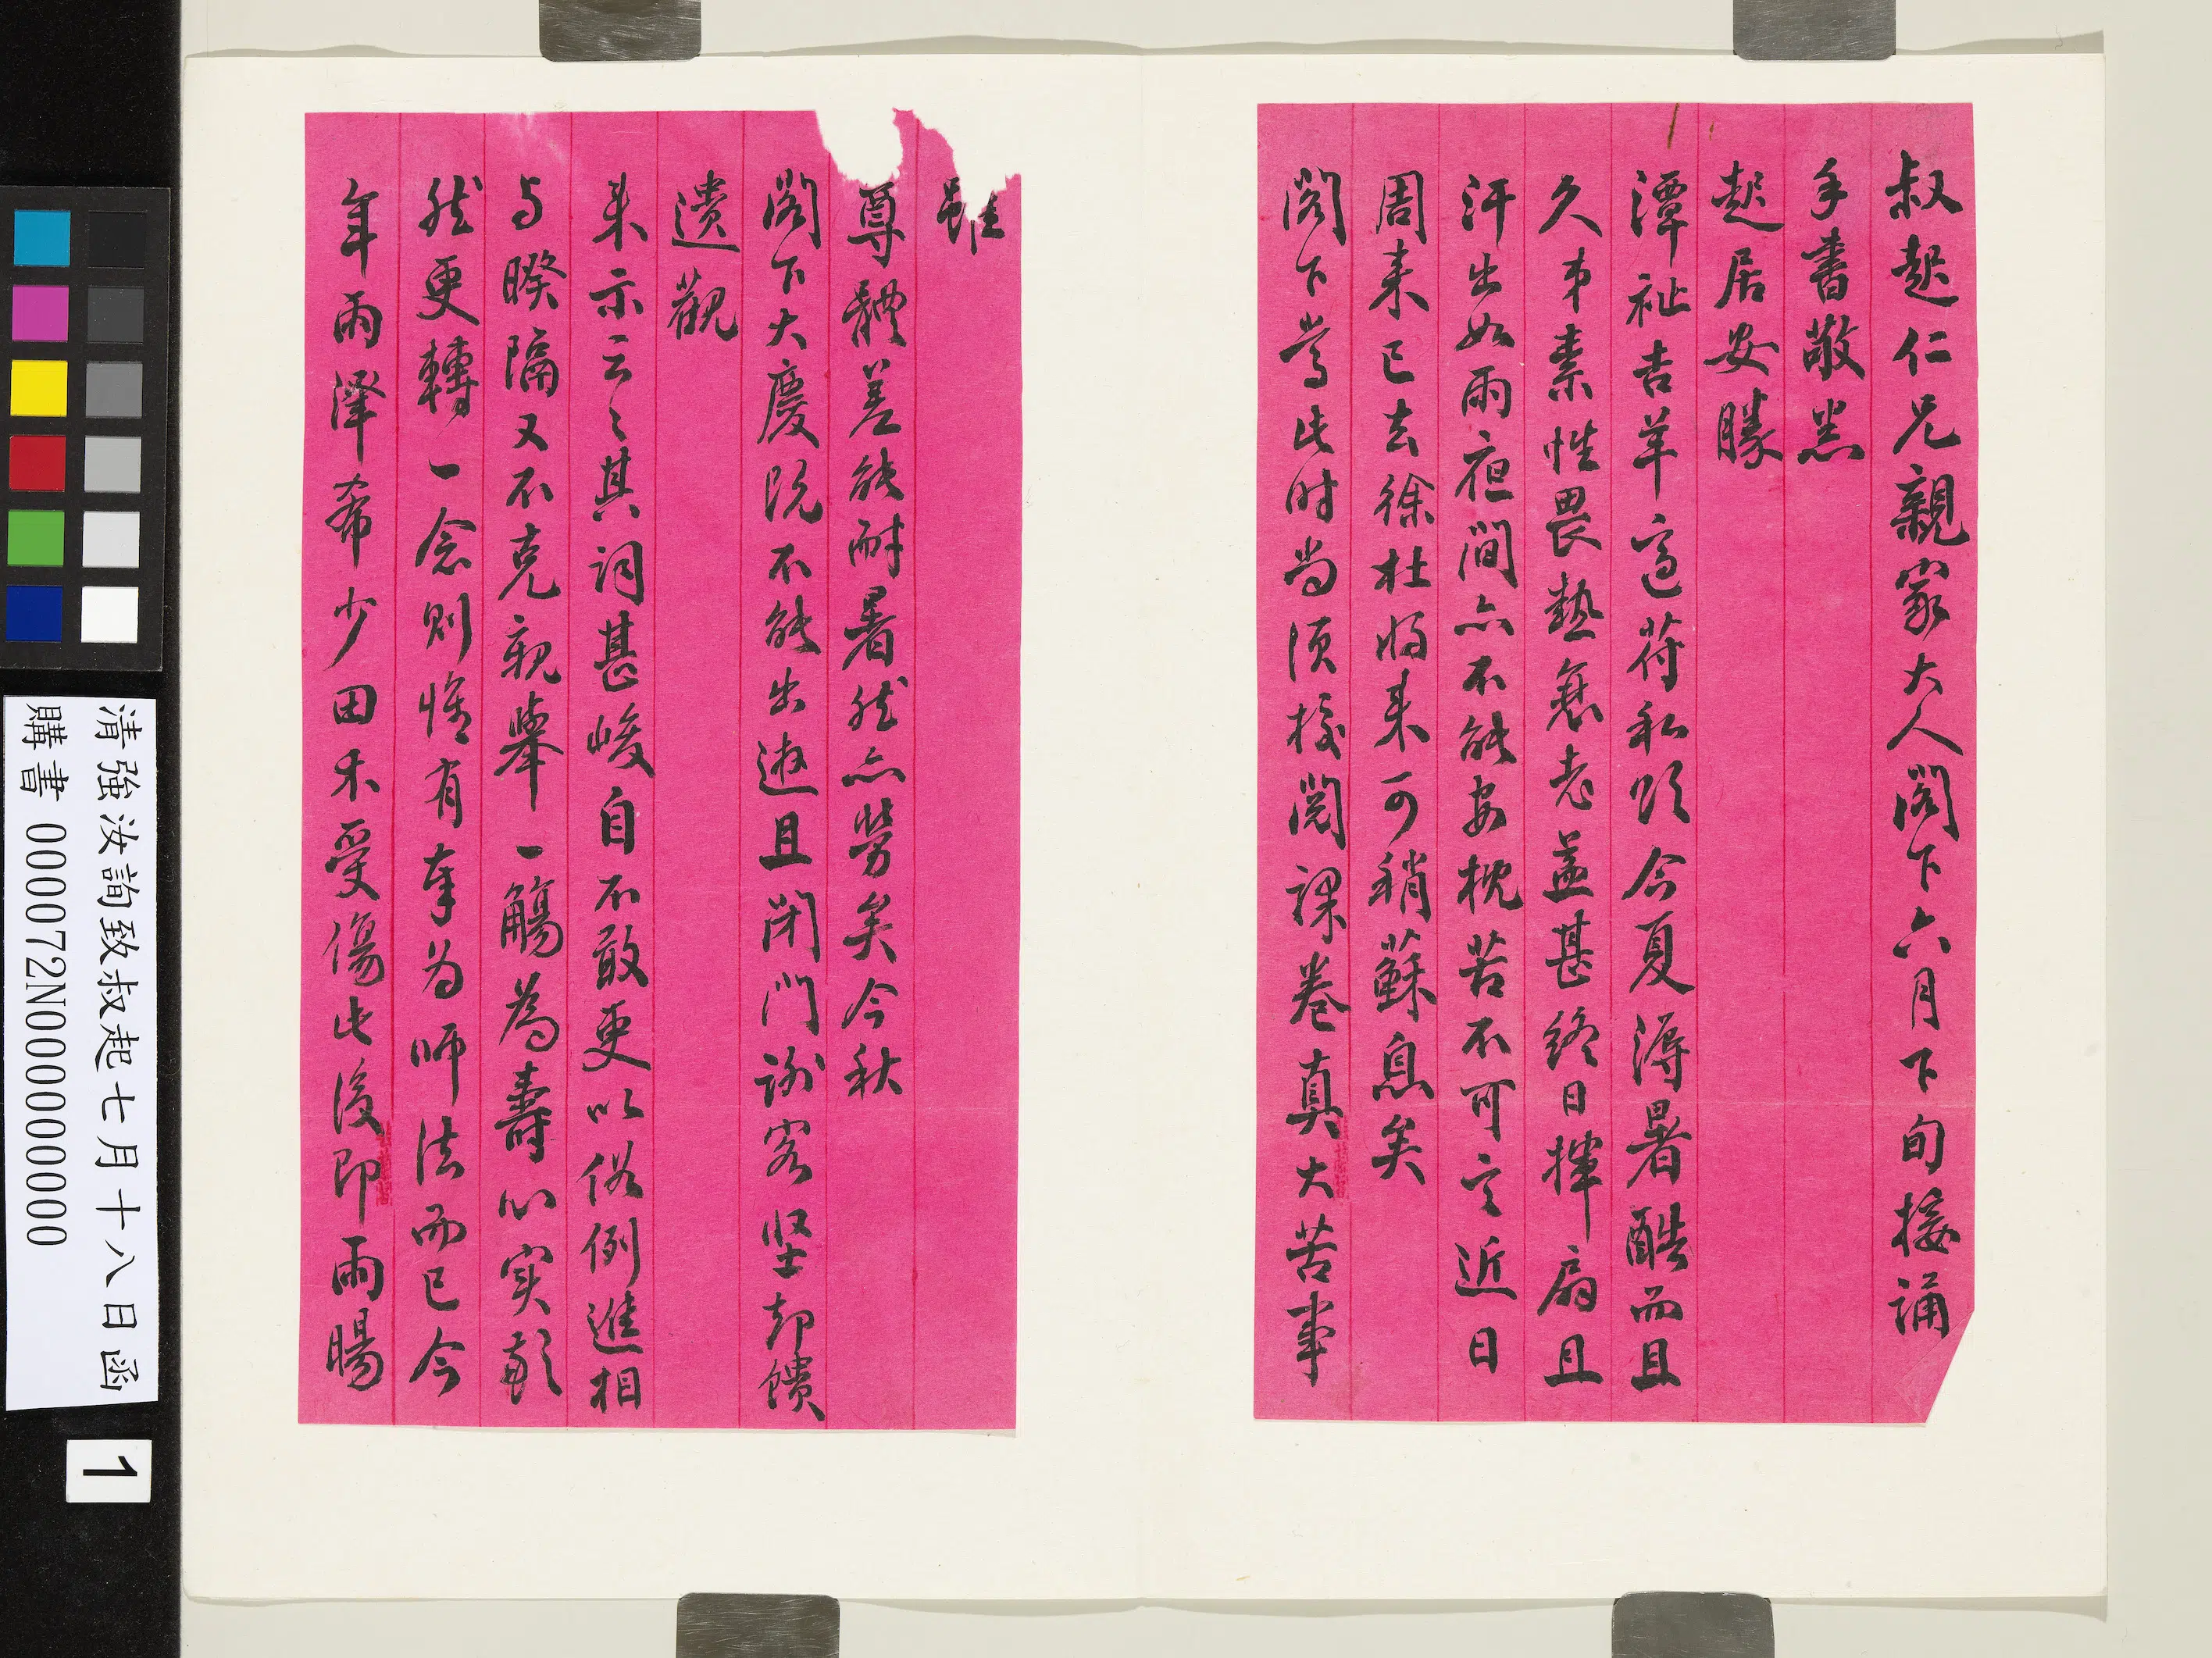 叔起仁兄親家大人閣下六月下旬接誦
手書敬悉
起居安勝
潭祉吉羊適符私頌念夏溽暑酷而且
久弟素性畏熱衰老益甚終日揮扇且
汗出如雨夜間亦不能安枕苦不可言近日
周來已去徐杜將來可稍蘇息矣
閣下當此時尚須校閱課卷真大苦事
雖
尊體差能耐暑然亦勞矣今秋
閣下大慶既不能出遊且閉門謝客堅卻饋
遺觀
來示云々其詞甚峻自不敢更以俗例進相
与暌隔又不克親舉一觴為壽心實歉
然更轉一念則惟有奉为師法而已今
年雨澤希少田禾受傷此後即雨暘
清強汝詢致叔起七月十八日函
購書 0000072N0000000000
1